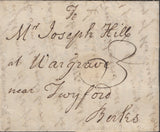 To
Mr Joseph Hill
at Wargrave
near Twyford
Berks
3